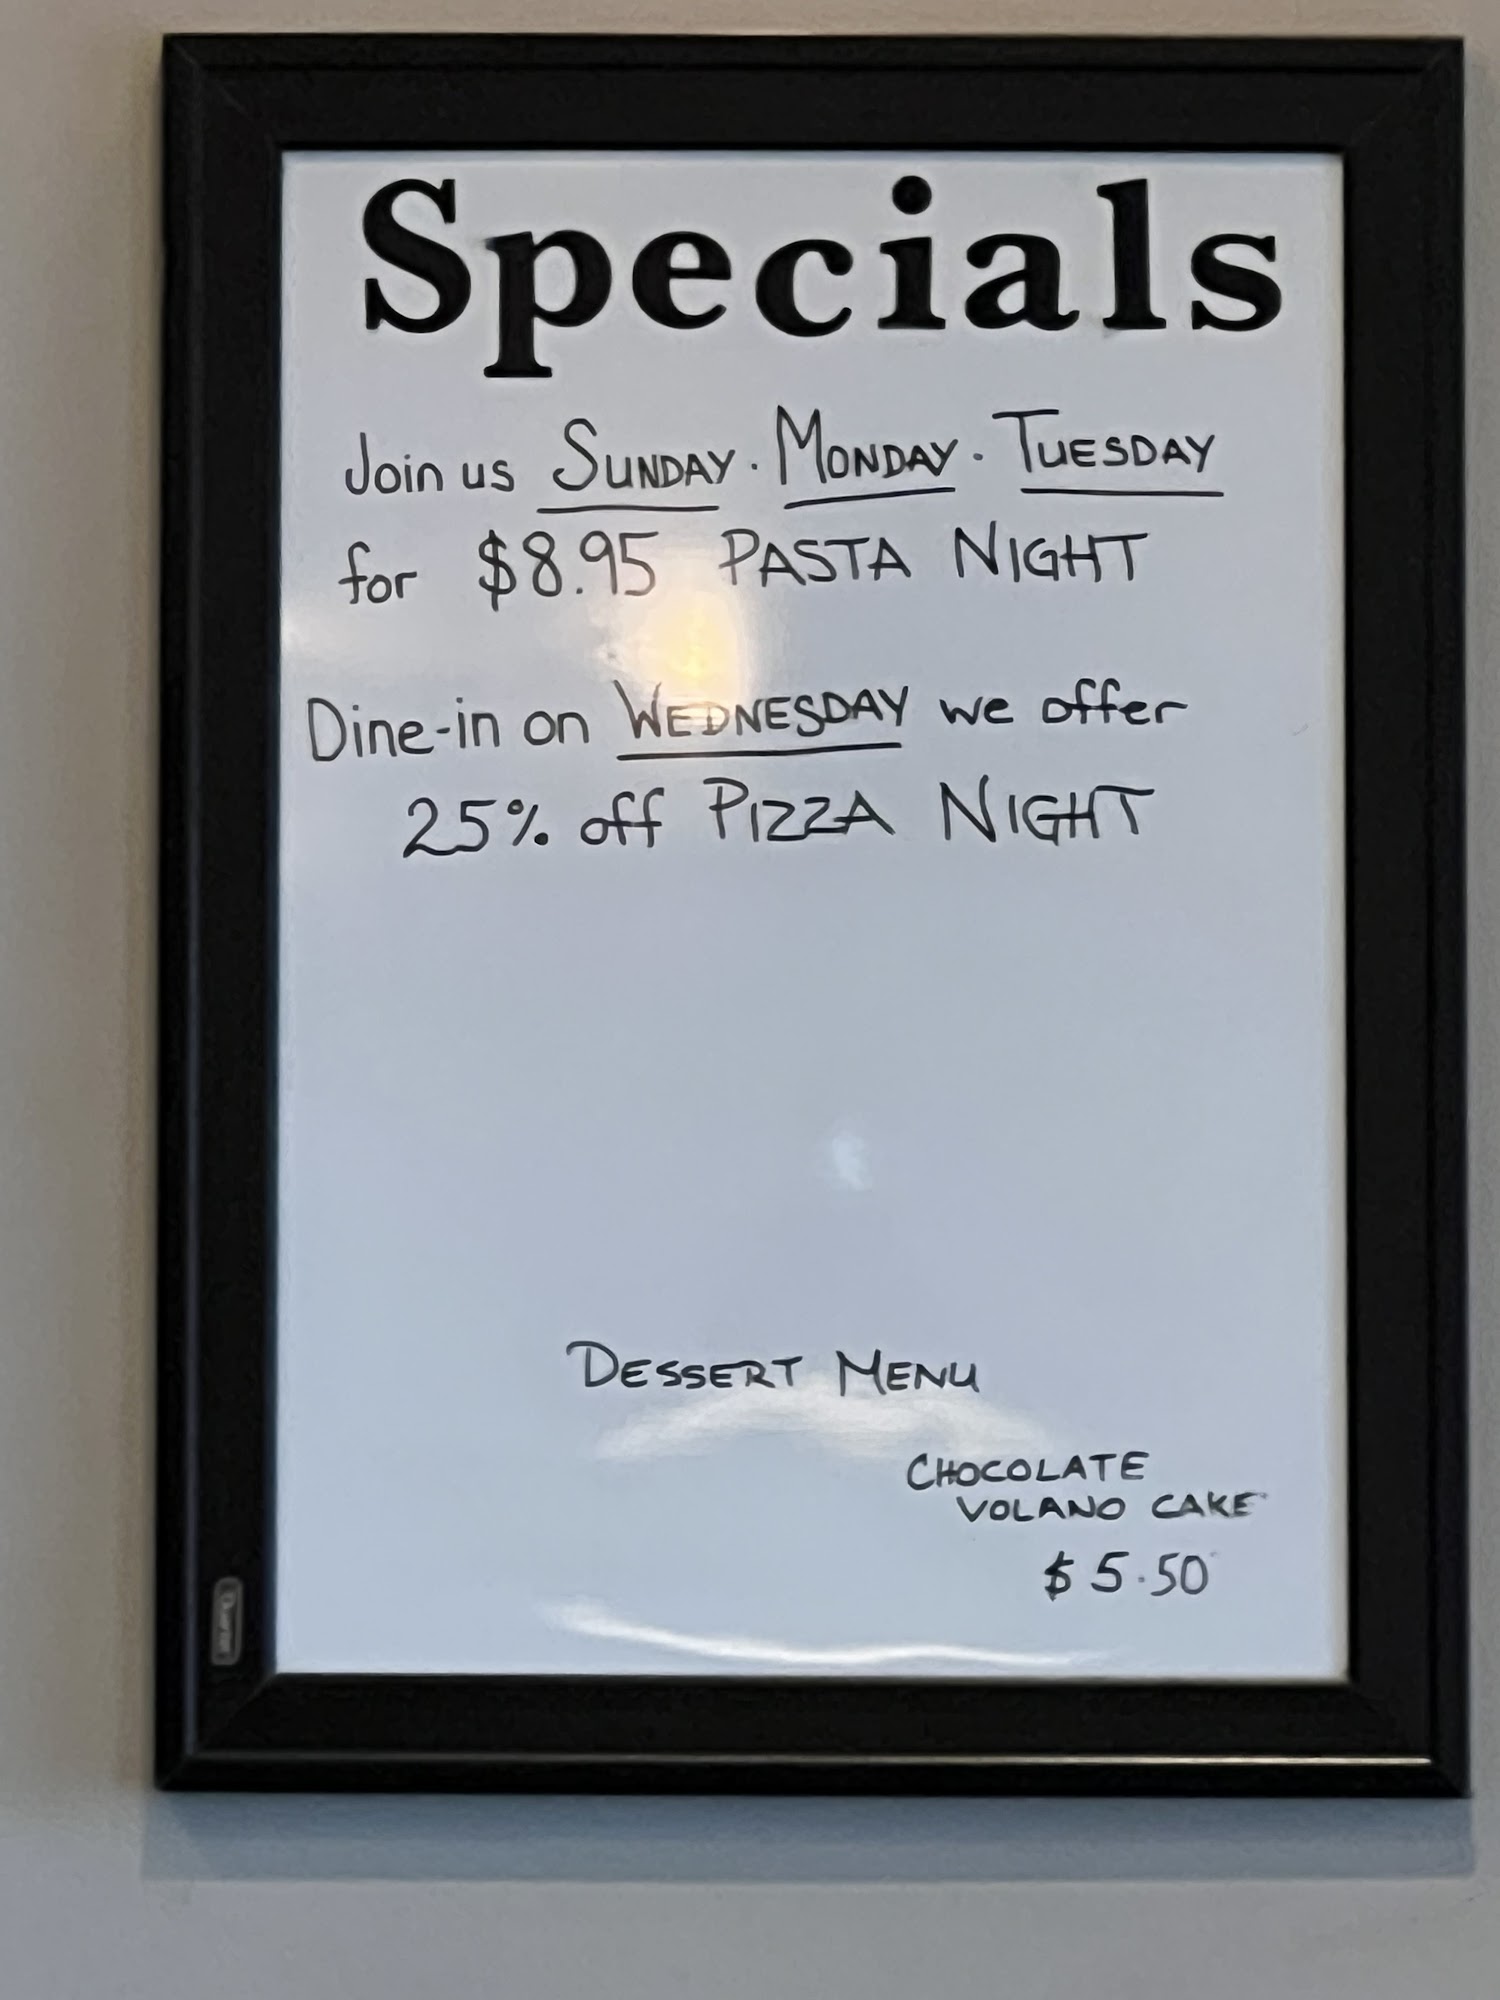 Specials
Join us SUNDAY · MONDAY · TUESDAY
for $8.95 PASTA NIGHT
Dine-in on WEDNESDAY we offer
25% off PIZZA NIGHT
DESSERT MENU
CHOCOLATE
VOLANO CAKE
$5.50